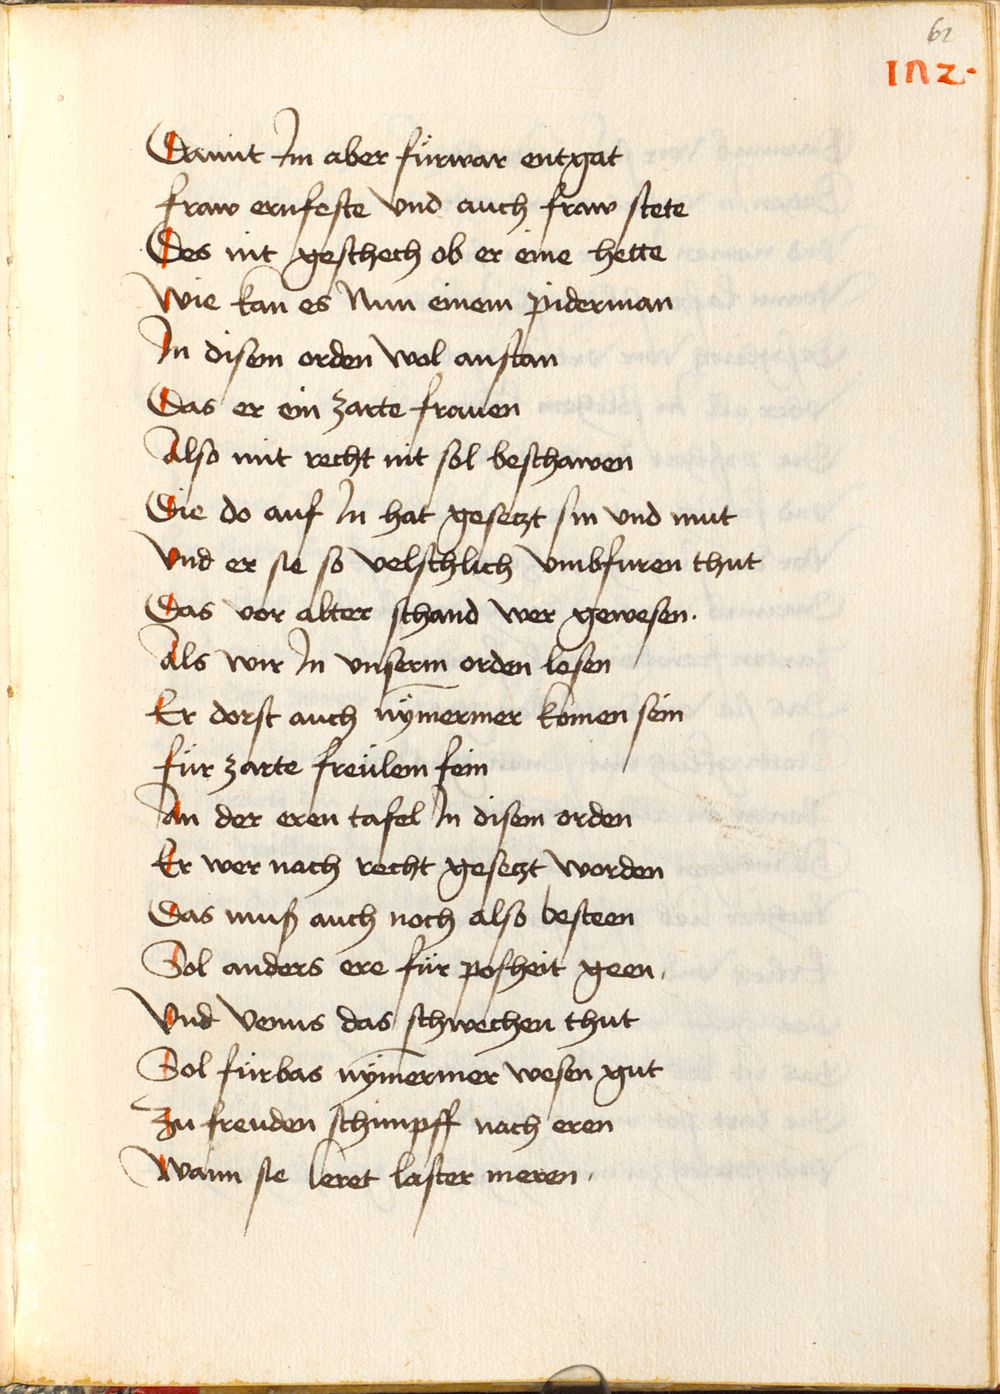 62
1n2.
Damit Im aber fürwar entgat
fraw ernfeste vnd auch fraw stete
Des nit geschech ob er eine hette
Wie kan es Nun einem piderman
In disem orden wol anstan
Das er ein zarte frauen
Also mit recht nit sol beschawen
Die do auf In hat gesetzt sin vnd mut
Vnd er sie so velschlich vmbfuren thut
Das vor alter schand wer gewesen.
Als wir In vnserm orden lesen
Er dorst auch nÿmermer komen sein
für zarte freülem fein
An der eren tafel In disem orden
Er wer nach recht gesetzt worden
Das muß auch noch also besteen
Sol anders ere für posheit geen.
Vnd Venus das schwechen thut
Sol fürbas nÿmermer wesen gut
Zu freuden schimpff nach eren
Wann sie leret laster meren.